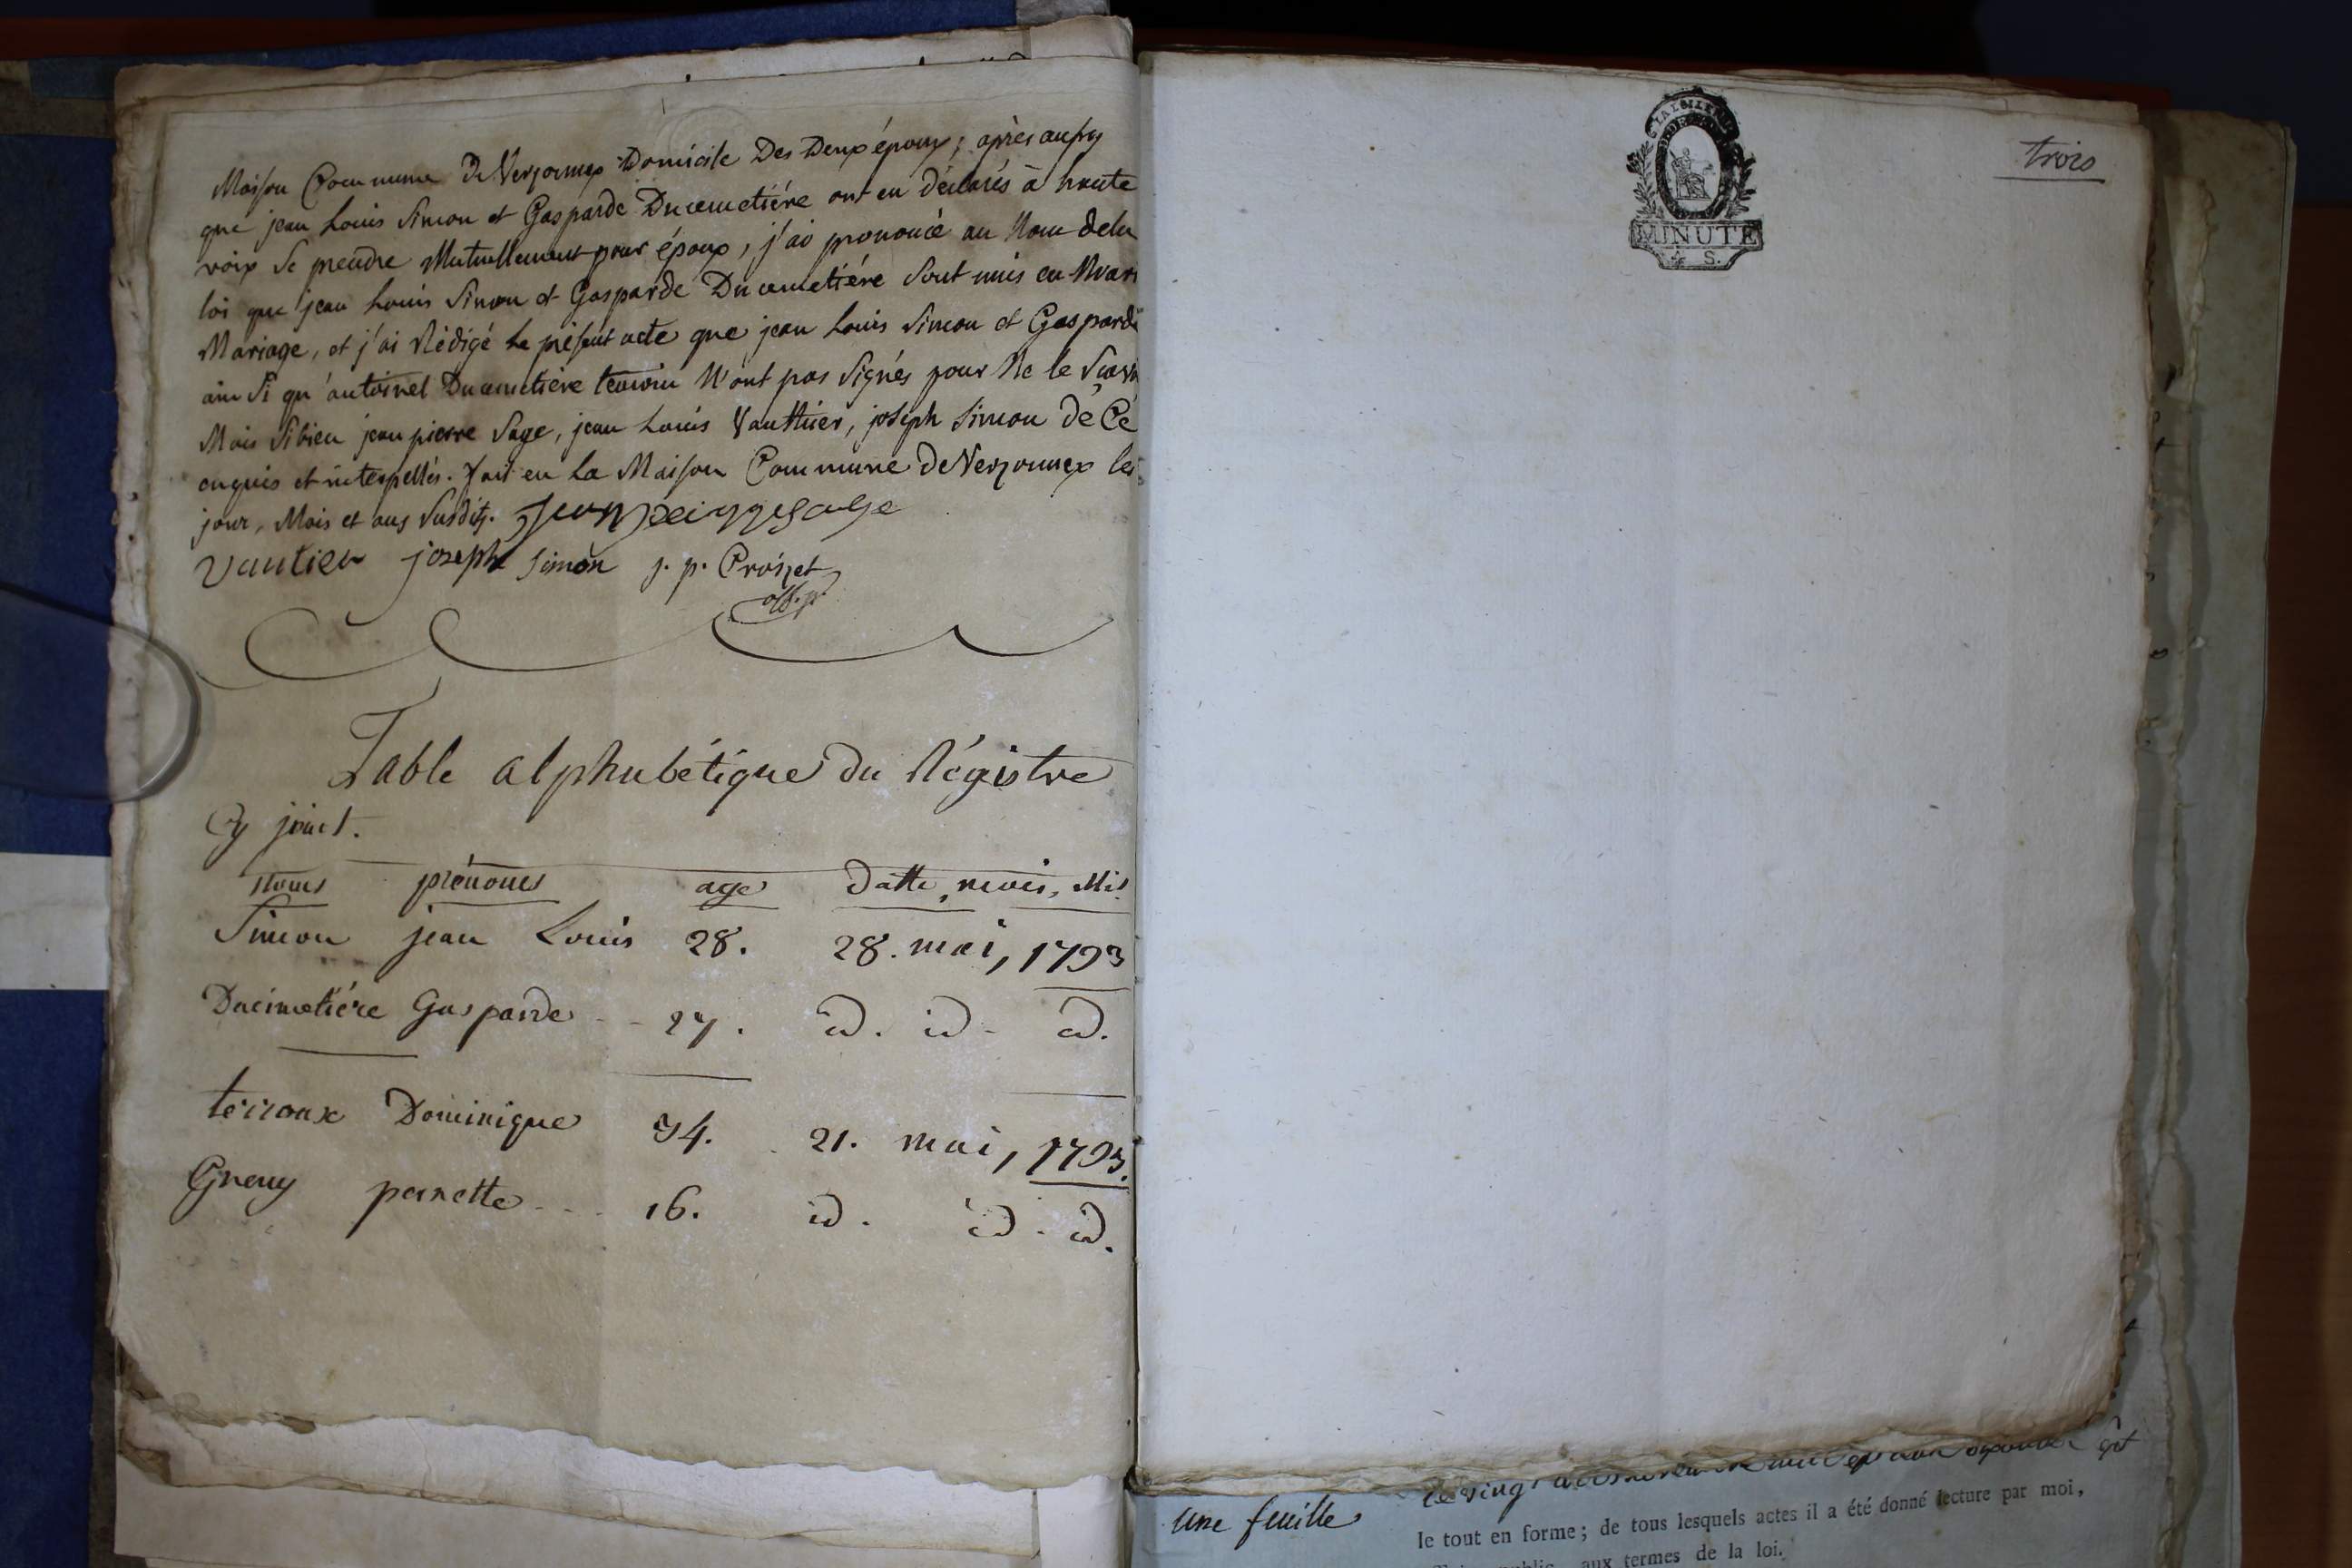 Maison Commune De Versonnex Domicile Des Deux époux; après aussy
que jean Louis Simon et Gasparde Ducemetiére ont eu déclarés à haute
voix Se prendre Mutuellement pour époux, j'ai prononcé au Nom dela
loi que jean Louis Simon et Gasparde Ducemetiére Sont unis en Mari
Mariage, et j'ai Rédigé Le présent acte que jean Louis Simon et Gasparde
ain Si qu'autoinel Ducemetiére temoin N'ont pas Signés pour Ne le Scavoir
Mais Sibien jean pierre Sage, jean Louis Vauthier, joseph Simon dé Ce
enquis et interpellés. fait en La Maison Commune De Versonnex les
jour, Mois et ans Susdits.
Vautier joseph Simon j. p. Croizet
off. p.
Table alphabétique du Régistre
Cy joint.
Noms prénoms age Datte, mois, Mil
Simon jean Louis 28. 28. mai, 1793
Ducimetiére Gasparde - - 27. id. id - id.
terroux Dominique 34. 21. mai, 1793.
Greny pernette - - - 16. id. id - id.
trois
LA LOI LE
MINUTE
4 S.
une feuille
le tout en forme; de tous lesquels actes il a été donné lecture par moi,
public, aux termes de la loi.